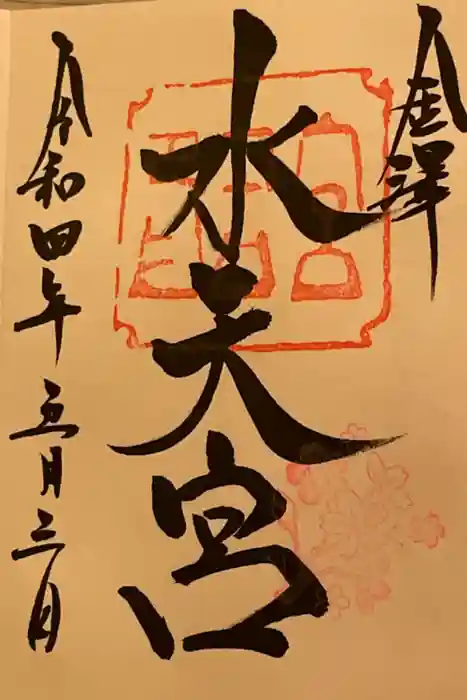 金澤
水天宮
令和四年五月三日